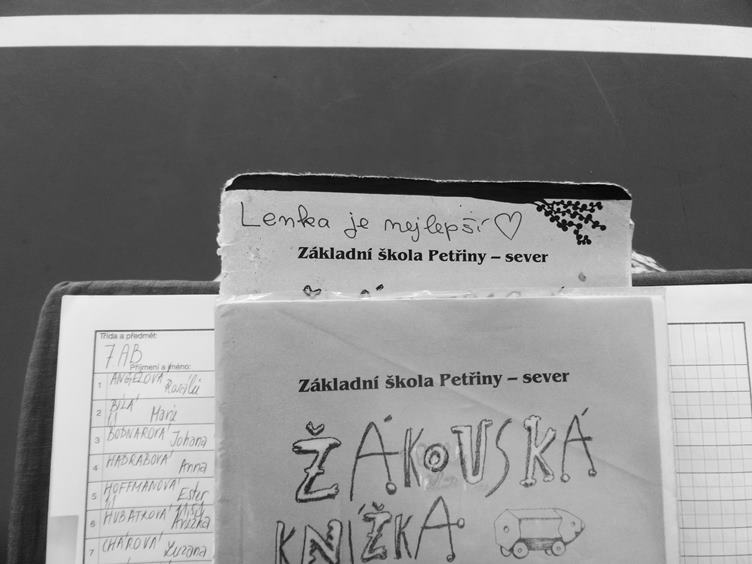 Lenka je nejlepší ♡
Základní škola Petřiny – sever
Základní škola Petřiny – sever
ŽÁKOVSKÁ
KNÍŽKA
Třída a předmět:
7AB
Příjmení a jméno:
1 ANGELOVA Rozálie
2 BÍLÁ Marie
3 BODNAROVÁ Johana
4 HABRABOVÁ Anna
5 HOFFMANOVÁ Ester
6 HUBATKOVÁ Anežka
7 CHÁROVÁ Zuzana